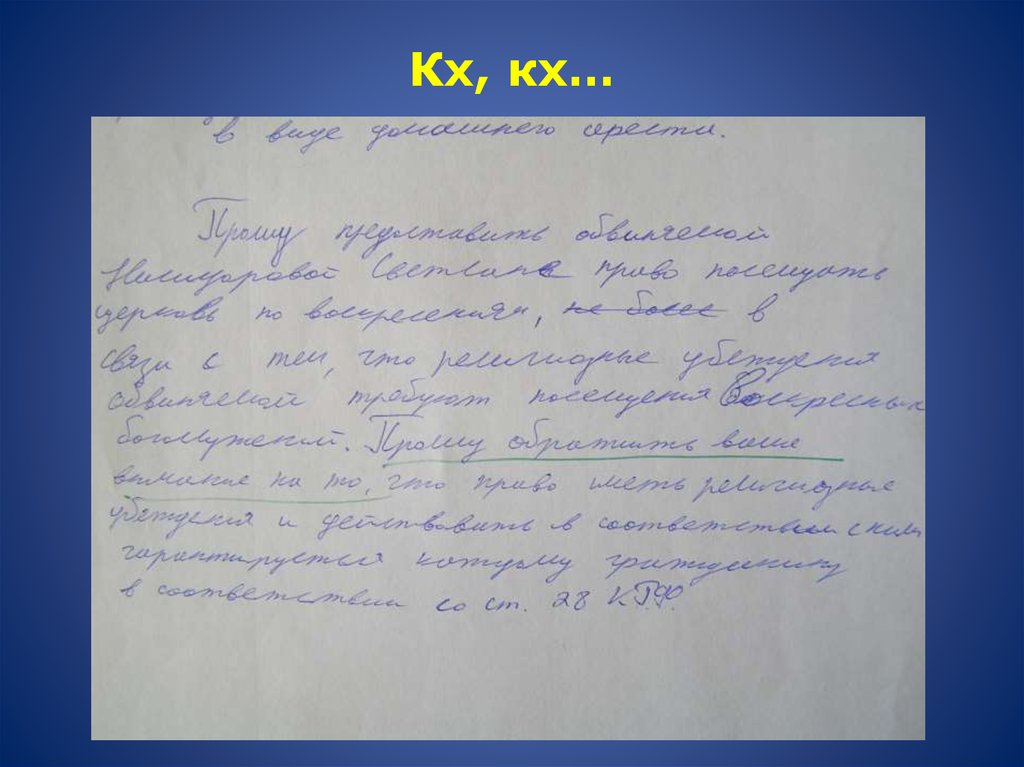 Кх, кх...
в виде домашнего ареста.
Прошу предоставить обвиняемой
Светлане право посещать
церковь по воскресениям, не более в
связи с тем, что религиозные убеждения
обвиняемой требуют посещения Воскресных
богослужений. Прошу обратить ваше
внимание на то, что право иметь религиозные
убеждения и действовать в соответствии с ними
гарантируется каждому гражданину
в соответствии со ст. 28 К.Р.Ф.